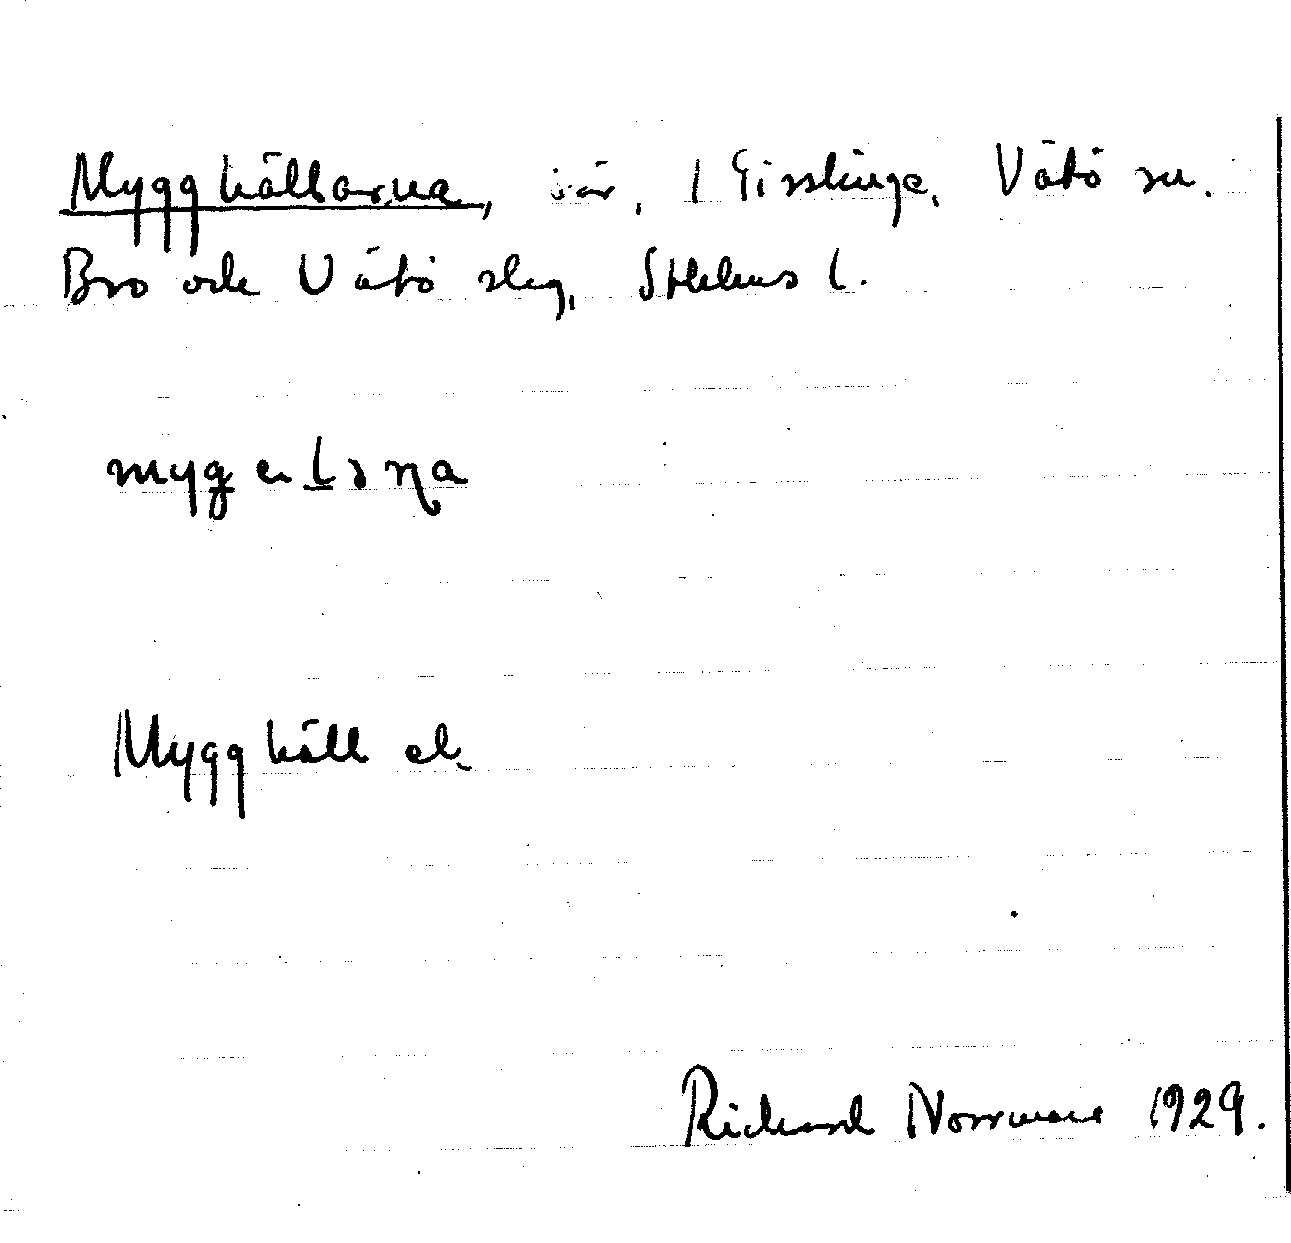 Mygghällarna, i Gisslinge, Vätö sn.
Bro och Vätö slg, Sthlms l.
Mygghäll el.
Richard Norrman 1929.